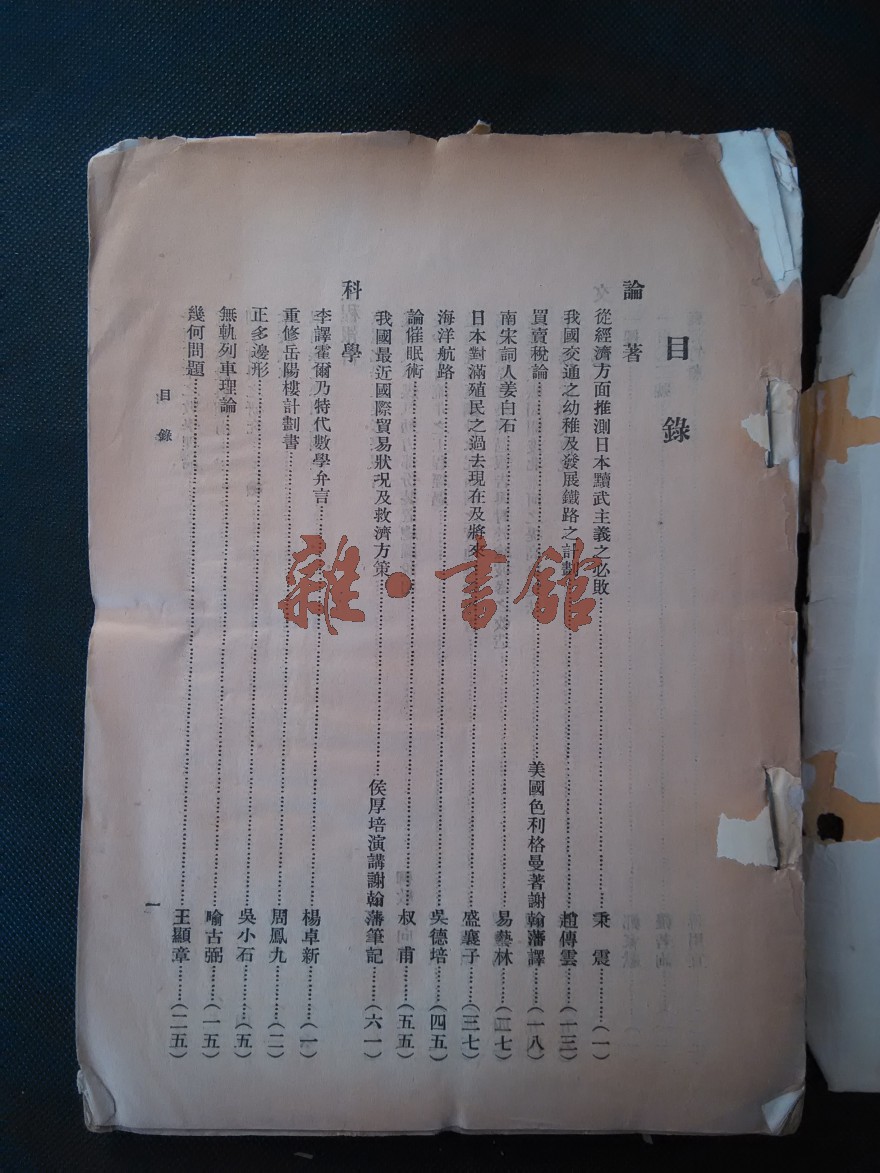 目錄
論著
從經濟方面推測日本黷武主義之必敗……秉震……(一)
我國交通之幼稚及發展鐵路之計劃……趙傳雲……(一三)
買賣稅論……美國色利格曼著謝翰藩譯……(一八)
南宋詞人姜白石……易藝林……(二七)
日本對滿殖民之過去現在及將來……盛襄子……(三七)
海洋航路……吳德培……(四五)
論催眠術……叔甫……(五五)
我國最近國際貿易狀況及救濟方策……侯厚培演講謝翰藩筆記……(六一)
科學
李譯霍爾乃特代數學弁言……楊卓新……(一)
重修岳陽樓計劃書……周鳳九……(二)
正多邊形……吳小石……(五)
無軌列車理論……喻古弼……(一五)
幾何問題……王顯章……(二五)
目錄
一
雜·書館